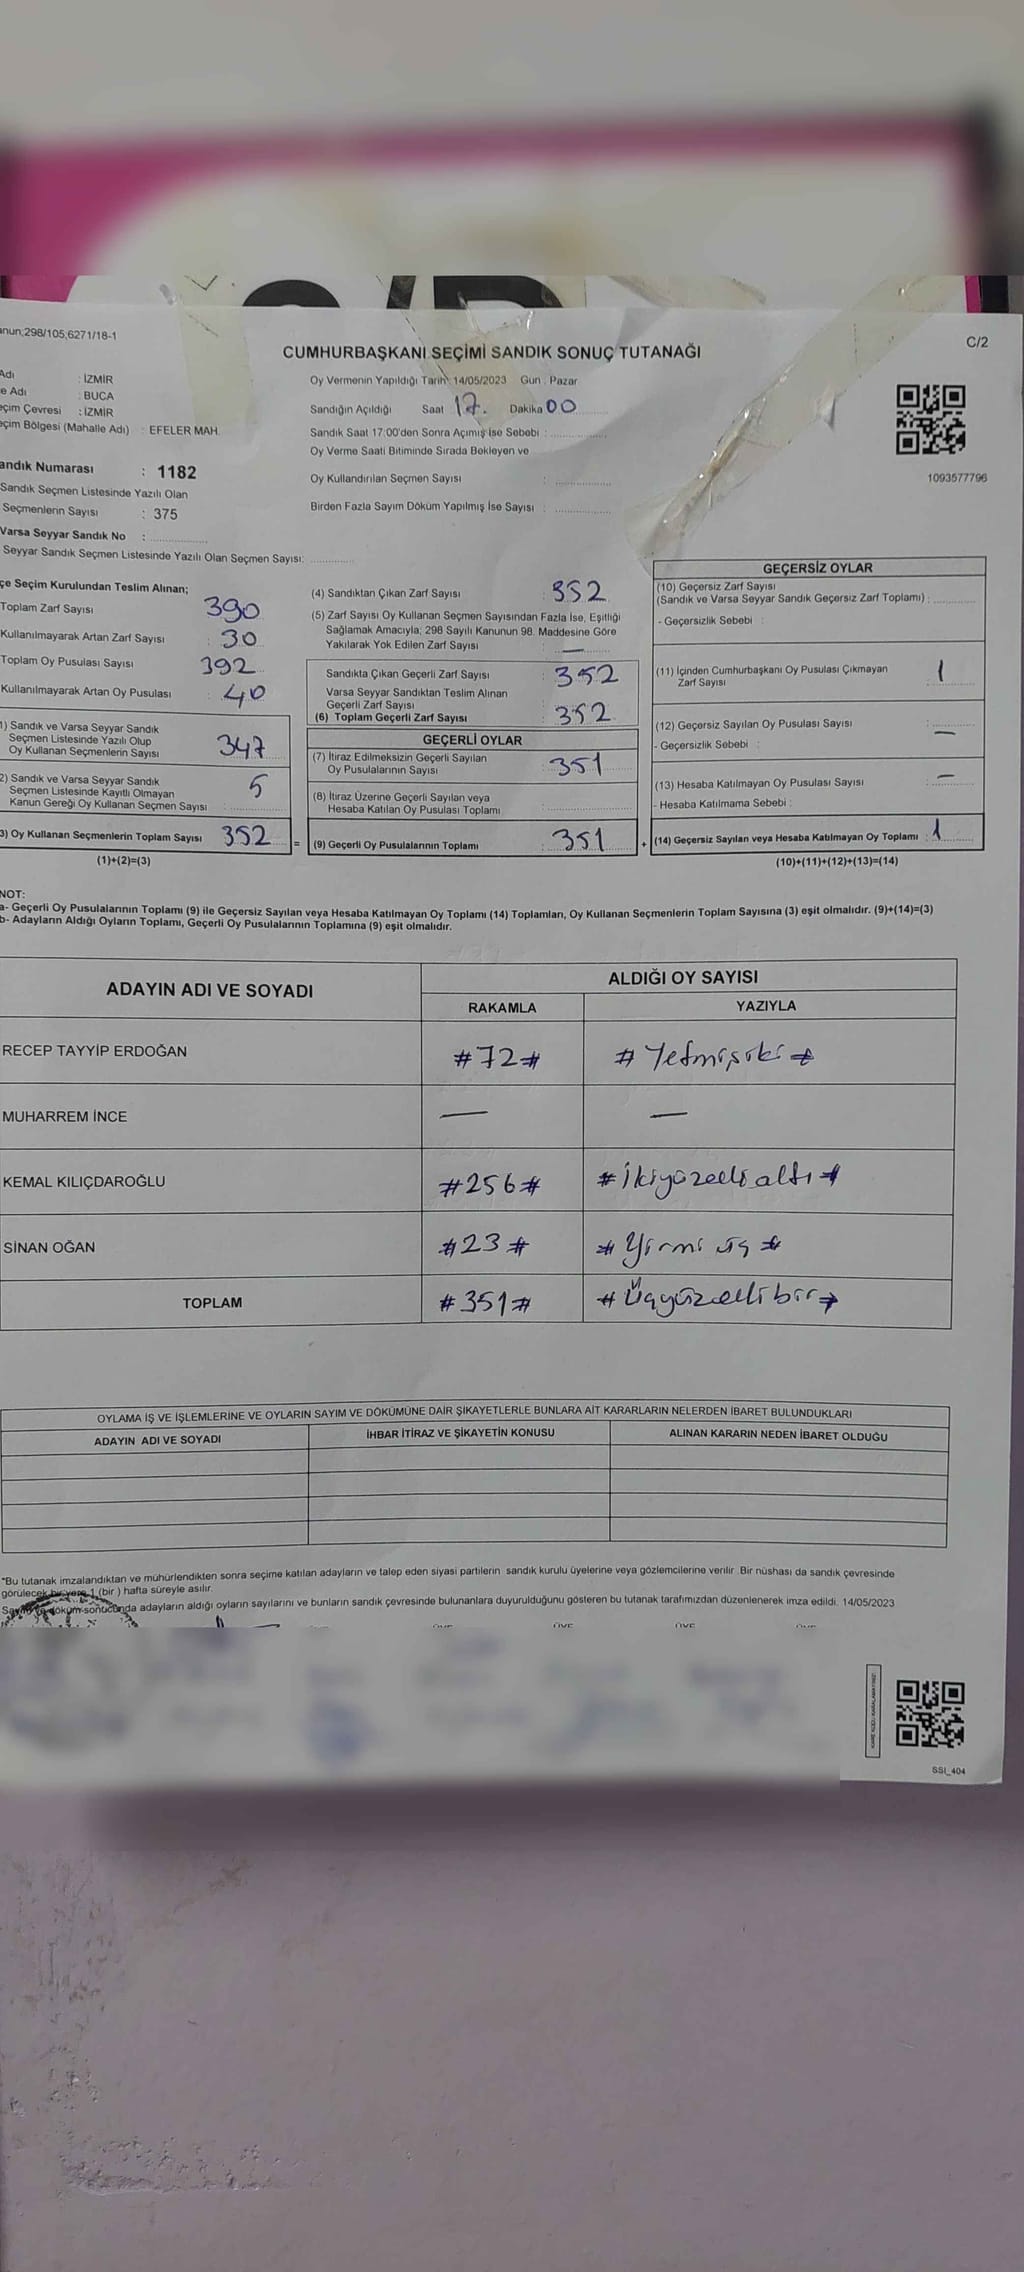 anun;298/105;6271/18-1
C/2
CUMHURBAŞKANI SEÇİMİ SANDIK SONUÇ TUTANAĞI
Adı : İZMİR
e Adı : BUCA
eçim Çevresi : İZMİR
eçim Bölgesi (Mahalle Adı) : EFELER MAH.
andık Numarası : 1182
Sandık Seçmen Listesinde Yazılı Olan
Seçmenlerin Sayısı : 375
Varsa Seyyar Sandık No :
Seyyar Sandık Seçmen Listesinde Yazılı Olan Seçmen Sayısı:
Oy Vermenin Yapıldığı Tarih: 14/05/2023 Gün : Pazar
Sandığın Açıldığı Saat 17. Dakika 00
Sandık Saat 17:00'den Sonra Açımış İse Sebebi :
Oy Verme Saati Bitiminde Sırada Bekleyen ve
Oy Kullandırılan Seçmen Sayısı :
Birden Fazla Sayım Döküm Yapılmış İse Sayısı :
1093577796
çe Seçim Kurulundan Teslim Alınan;
Toplam Zarf Sayısı 390
Kullanılmayarak Artan Zarf Sayısı : 30
Toplam Oy Pusulası Sayısı 392
Kullanılmayarak Artan Oy Pusulası : 40
1) Sandık ve Varsa Seyyar Sandık
Seçmen Listesinde Yazılı Olup
Oy Kullanan Seçmenlerin Sayısı 347
2) Sandık ve Varsa Seyyar Sandık
Seçmen Listesinde Kayıtlı Olmayan
Kanun Gereği Oy Kullanan Seçmen Sayısı : 5
3) Oy Kullanan Seçmenlerin Toplam Sayısı 352
(1)+(2)=(3)
(4) Sandıktan Çıkan Zarf Sayısı : 352
(5) Zarf Sayısı Oy Kullanan Seçmen Sayısından Fazla İse, Eşitliği
Sağlamak Amacıyla; 298 Sayılı Kanunun 98. Maddesine Göre
Yakılarak Yok Edilen Zarf Sayısı : —
Sandıkta Çıkan Geçerli Zarf Sayısı : 352
Varsa Seyyar Sandıktan Teslim Alınan
Geçerli Zarf Sayısı :
(6) Toplam Geçerli Zarf Sayısı : 352
GEÇERLİ OYLAR
(7) İtiraz Edilmeksizin Geçerli Sayılan
Oy Pusulalarının Sayısı : 351
(8) İtiraz Üzerine Geçerli Sayılan veya
Hesaba Katılan Oy Pusulası Toplamı :
= (9) Geçerli Oy Pusulalarının Toplamı : 351
GEÇERSİZ OYLAR
(10) Geçersiz Zarf Sayısı
(Sandık ve Varsa Seyyar Sandık Geçersiz Zarf Toplamı) :
- Geçersizlik Sebebi :
(11) İçinden Cumhurbaşkanı Oy Pusulası Çıkmayan
Zarf Sayısı : 1
(12) Geçersiz Sayılan Oy Pusulası Sayısı : —
- Geçersizlik Sebebi :
(13) Hesaba Katılmayan Oy Pusulası Sayısı : —
- Hesaba Katılmama Sebebi :
+ (14) Geçersiz Sayılan veya Hesaba Katılmayan Oy Toplamı : 1
(10)+(11)+(12)+(13)=(14)
NOT:
a- Geçerli Oy Pusulalarının Toplamı (9) ile Geçersiz Sayılan veya Hesaba Katılmayan Oy Toplamı (14) Toplamları, Oy Kullanan Seçmenlerin Toplam Sayısına (3) eşit olmalıdır. (9)+(14)=(3)
b- Adayların Aldığı Oyların Toplamı, Geçerli Oy Pusulalarının Toplamına (9) eşit olmalıdır.
ADAYIN ADI VE SOYADI ALDIĞI OY SAYISI
RAKAMLA YAZIYLA
RECEP TAYYİP ERDOĞAN #72# # Yetmişiki #
MUHARREM İNCE — —
KEMAL KILIÇDAROĞLU #256# # İkiyüzelli altı #
SİNAN OĞAN #23# # Yirmi üç #
TOPLAM #351# # Üçyüzellibir #
OYLAMA İŞ VE İŞLEMLERİNE VE OYLARIN SAYIM VE DÖKÜMÜNE DAİR ŞİKAYETLERLE BUNLARA AİT KARARLARIN NELERDEN İBARET BULUNDUKLARI
ADAYIN ADI VE SOYADI İHBAR İTİRAZ VE ŞİKAYETİN KONUSU ALINAN KARARIN NEDEN İBARET OLDUĞU
*Bu tutanak imzalandıktan ve mühürlendikten sonra seçime katılan adayların ve talep eden siyasi partilerin sandık kurulu üyelerine veya gözlemcilerine verilir .Bir nüshası da sandık çevresinde
görülecek bir yere 1 (bir ) hafta süreyle asılır.
Sayım ve döküm sonucunda adayların aldığı oyların sayılarını ve bunların sandık çevresinde bulunanlara duyurulduğunu gösteren bu tutanak tarafımızdan düzenlenerek imza edildi. 14/05/2023
SSI_404